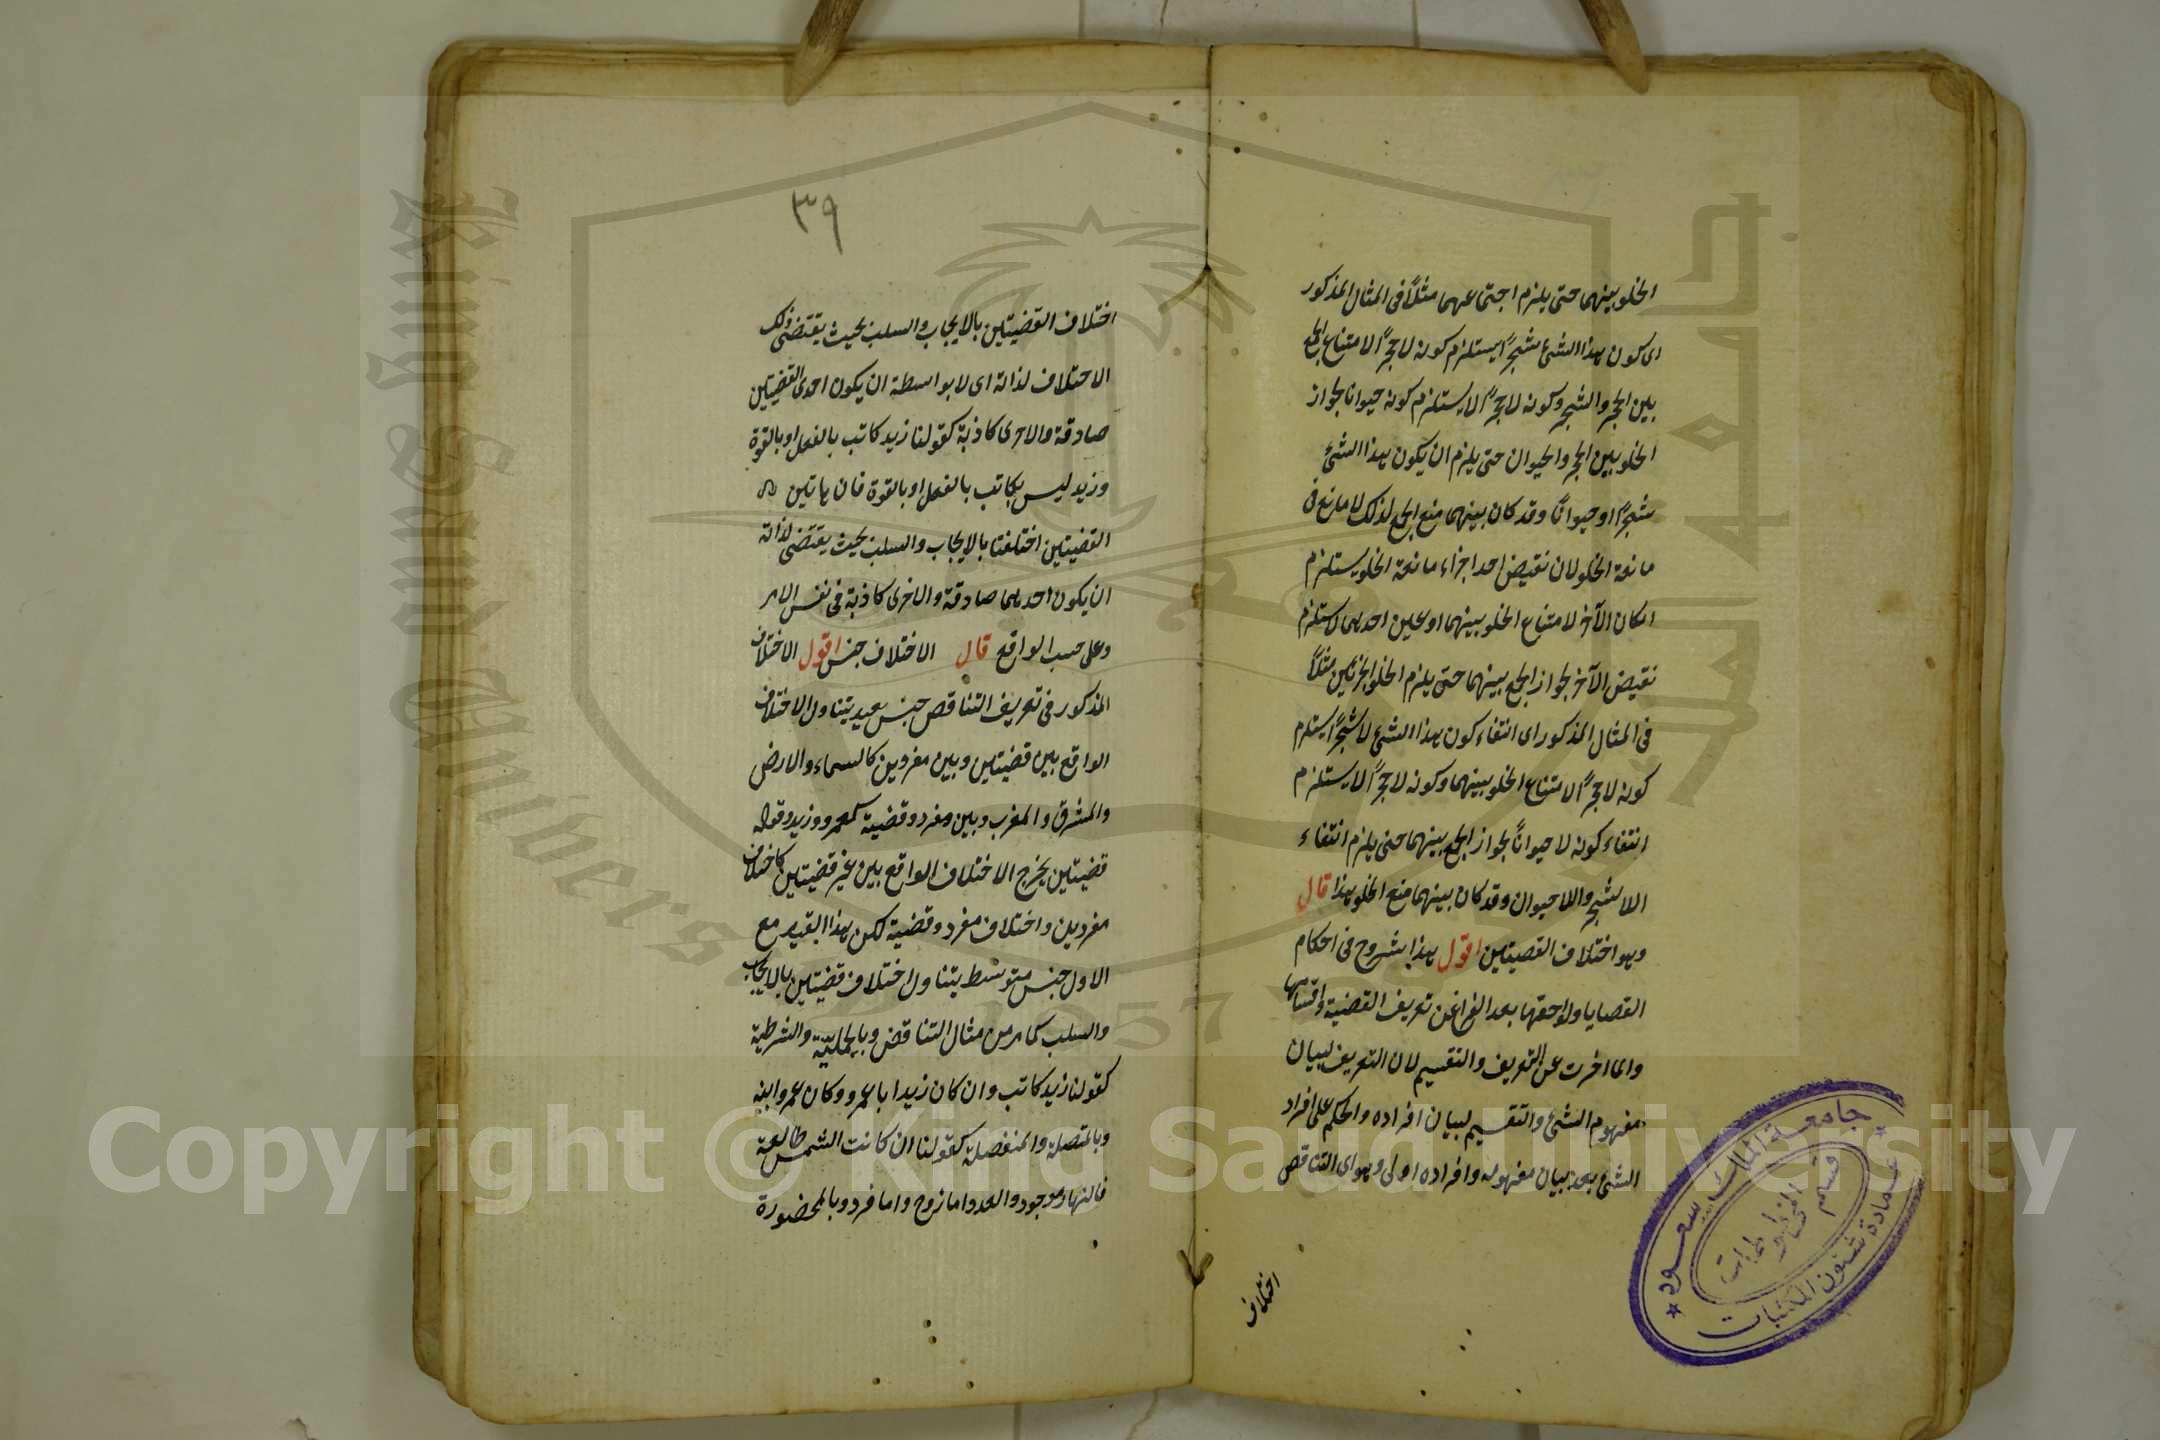 الخلو بينهما حتى يلزم اجتماعهما مثلاً فى المثال المذكور
اى كون هذا الشئ شجراً يستلزم كونه لا حجراً لامتناع الجمع
بين الحجر والشجر وكونه لا حجراً لا يستلزم كونه حيوانا لجواز
الخلو بين الحجر والحيوان حتى يلزم ان يكون هذا الشئ
شجراً او حيواناً وقد كان بينهما منع الجمع لذلك لا مانع فى
مانعة الخلو لان نقيض احد اجزاء مانعة الخلو يستلزم
امكان الآخر لامتناع الخلو بينهما او عين احدهما لا يستلزم
نقيض الآخر لجواز الجمع بينهما حتى يلزم الخلو الجزئين مثلاً
فى المثال المذكور اى انتفاء كون هذا الشئ لا شجراً يستلزم
كونه لا حجراً لامتناع الخلو بينهما وكونه لا حجراً لا يستلزم
انتفاء كونه لا حيواناً لجواز الجمع بينهما حتى يلزم انتفاء
اللا شجر واللا حيوان وقد كان بينهما منع الخلو هذا قال
وهو اختلاف القضيتين اقول هذا شروع فى احكام
القضايا ولواحقها بعد الفراغ عن تعريف القضية واقسامها
وانما اخرت عن التعريف والتقسيم لان التعريف لبيان
مفهوم الشئ والتقسيم لبيان افراده والحكم على افراد
الشئ بعد بيان مفهومه وافراده اولى وهو اى التناقض
اختلاف
جامعة الملك سعود
قسم المخطوطات
عمادة شئون المكتبات
٣٩
اختلاف القضيتين بالايجاب والسلب بحيث يقتضى ذلك
الاختلاف لذاته اى لا بواسطة ان يكون احدى القضيتين
صادقة والاخرى كاذبة كقولنا زيد كاتب بالفعل او بالقوة
وزيد ليس بكاتب بالفعل او بالقوة فان هاتين
القضيتين اختلفتا بالايجاب والسلب بحيث يقتضى لذاته
ان يكون احدهما صادقة والاخرى كاذبة فى نفس الامر
وعلى حسب الواقع قال الاختلاف جنس اقول الاختلاف
المذكور فى تعريف التناقض جنس بعيد يتناول الاختلاف
الواقع بين قضيتين وبين مفردين كالسماء والارض
والمشرق والمغرب وبين مفرد وقضية كعمرو وزيد وقوله
قضيتين يخرج الاختلاف الواقع بين غير قضيتين كاختلاف
مفردين واختلاف مفرد وقضية لكن هذا القيد مع
الاول جنس متوسط يتناول اختلاف قضيتين بالايجاب
والسلب كما مر من مثال التناقض وبالحملية والشرطية
كقولنا زيد كاتب وان كان زيد ابا عمرو وكان عمرو ابنه
وبالمتصلة والمنفصلة كقولنا ان كانت الشمس طالعة
فالنهار موجود والعدد اما زوج واما فرد وبالمحصورة
King Saud University
1957
Copyright © King Saud University